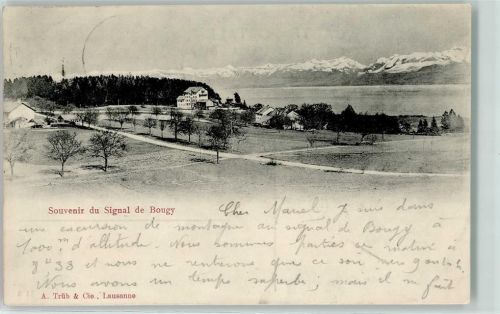 Souvenir du Signal de Bougy
Cher Marcel, Je suis dans
une excursion de montagne au signal de Bougy à
1000m d'altitude. Nous sommes parties ce matin à
8h33 et nous ne rentrerons que ce soir
Nous avons un temps superbe; mais il m fait
A. Trüb & Cie., Lausanne